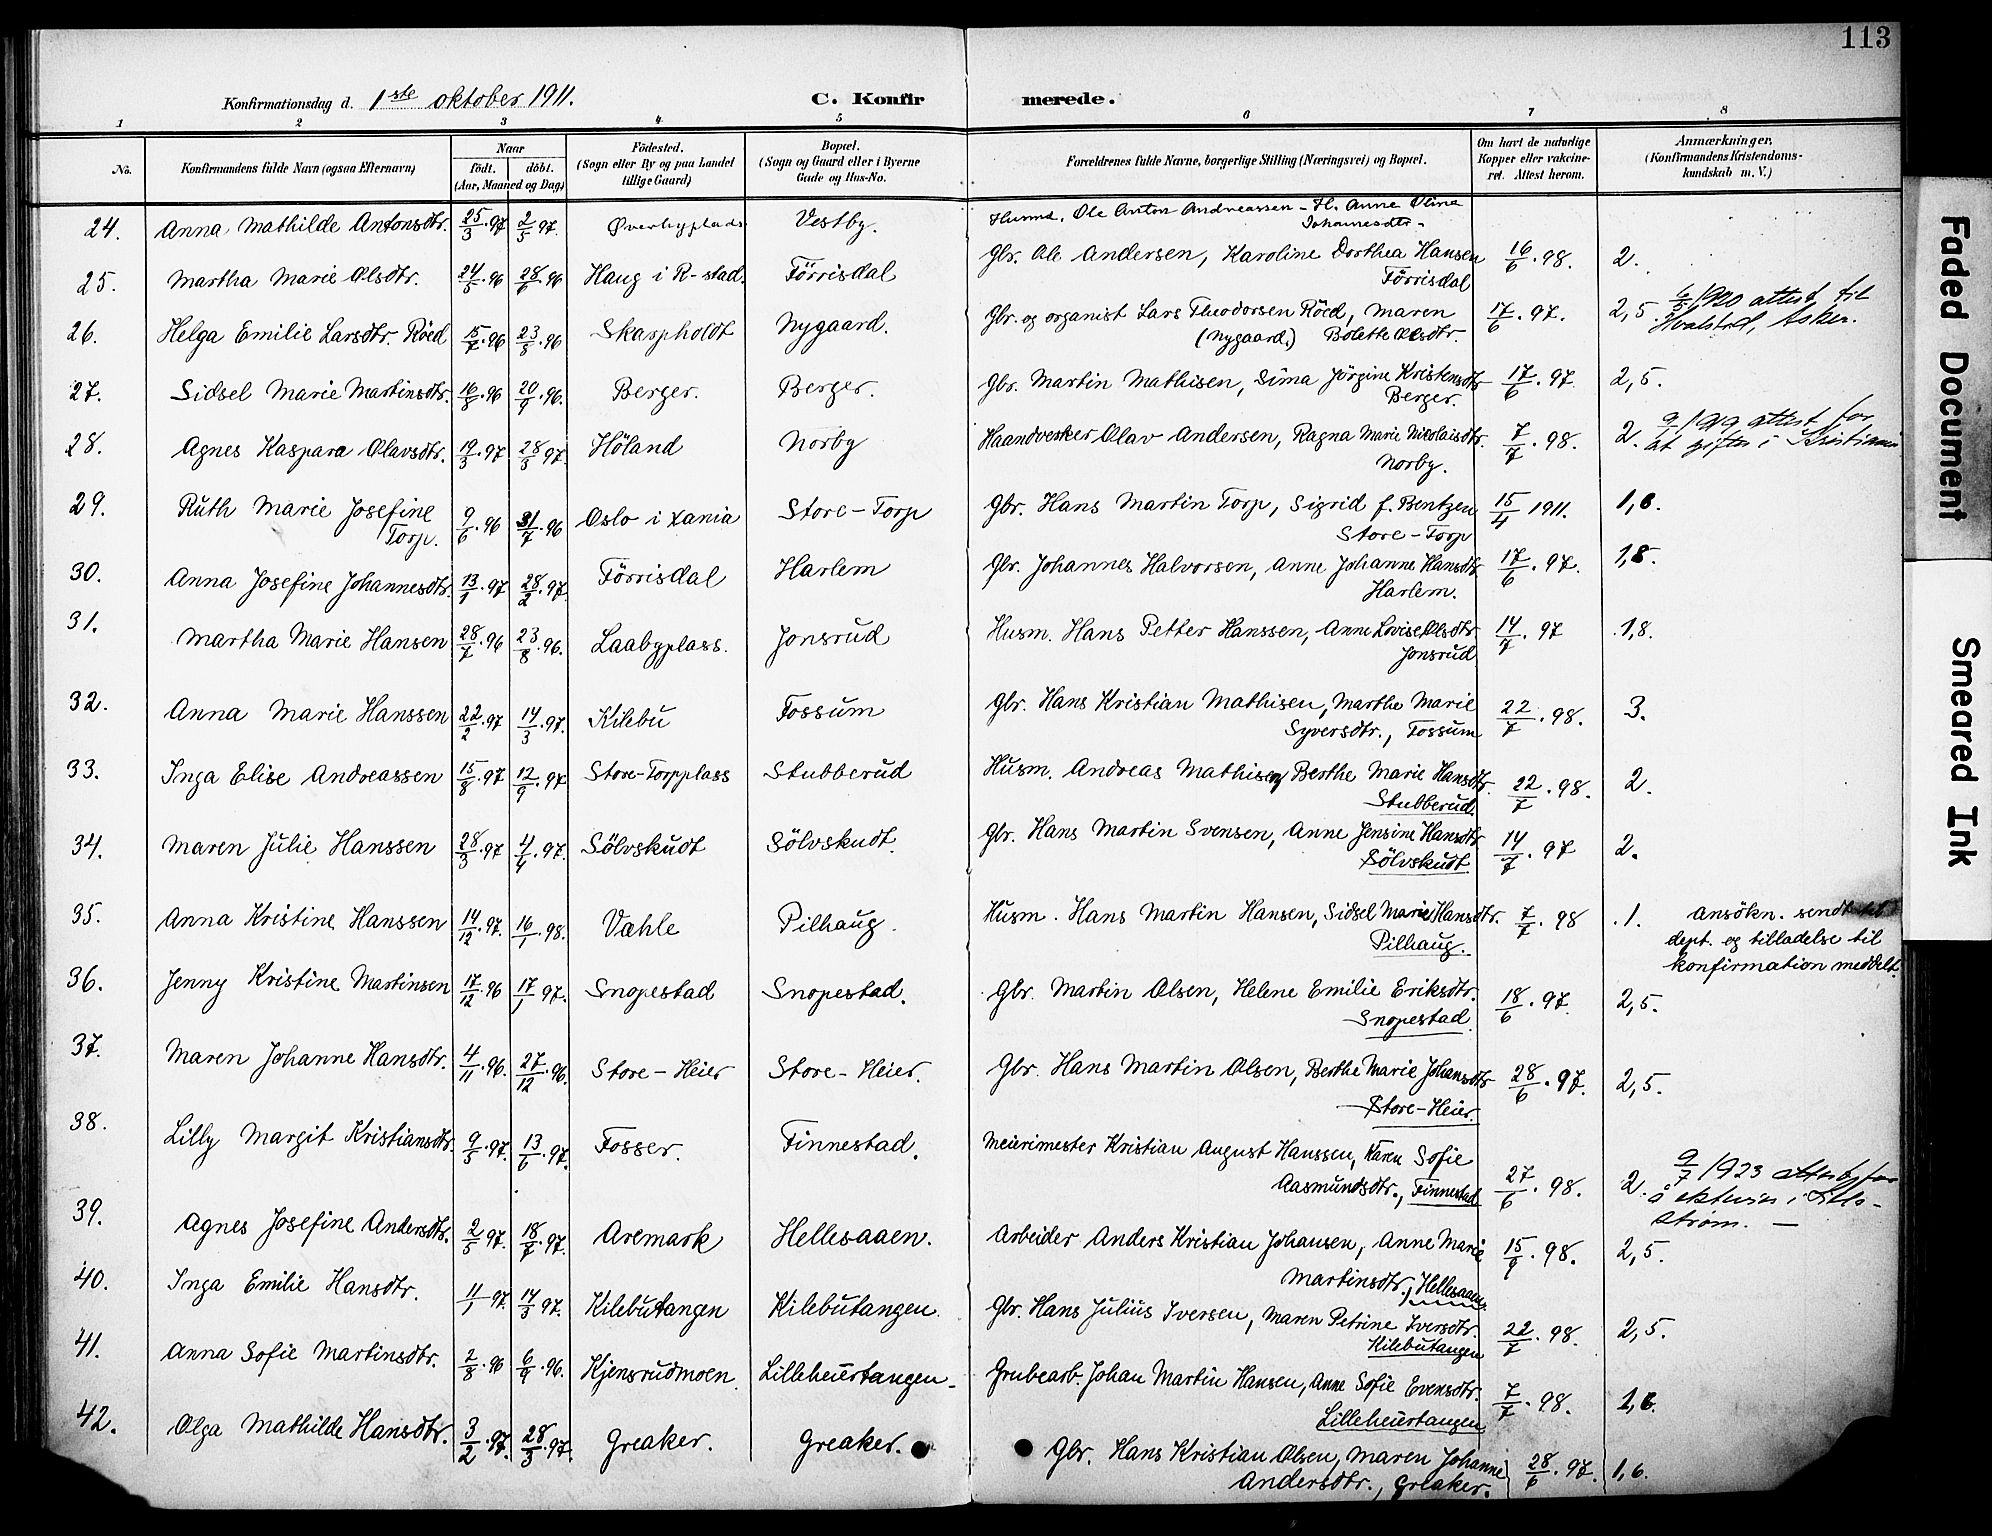 113
Konfirmationsdag d. 1ste oktober 1911.
C. Konfirmerede.
1 2 3 4 5 6 7 8
No.
Konfirmandens fulde Navn (ogsaa Efternavn)
Naar
födt. döbt.
(Aar, Maaned og Dag)
Födested.
(Sogn eller By og paa Landet
tillige Gaard)
Bopæl.
(Sogn og Gaard eller i Byerne
Gade og Hus-No.
Forældrenes fulde Navne, borgerlige Stilling (Næringsvei) og Bopæl.
Om havt de naturlige
Kopper eller vakcine-
ret. Attest herom.
Anmærkninger.
(Konfirmandens Kristendoms-
kundskab m. V.)
24. Anna Mathilde Antonsdtr. 25/3.97 2/5 97. Överbyplads Vestby. Husmd. Ole Anton Andreassen - H. Anne Olina
Johannesdtr.
25. Martha Marie Olsdtr. 24/5.96 28/6.96 Haug i R-stad. Förrisdal Gbr. Ole Andersen, Karoline Dorthea Hansen 16/6.98. 2.
Förrisdal
26. Helga Emilie Larsdtr. Röed 15/7.96 23/8.96 Skaspholdt Nygaard. Gbr. og organist Lars Theodorsen Röed, Maren 17/6.97. 2,5. 6/5 1920 attest til
(Nygaard.) Bolette Olsdtr. Hvalstad, Asker.
27. Sidsel Marie Martinsdtr. 16/8.96 20/9.96. Berger. Berger. Gbr. Martin Mathisen, Sima Jörgine Kristensdtr 17/6.97. 2,5.
Berger.
28. Agnes Kaspara Olavsdtr. 19/3.97 28/3 97. Höland Norby Haandverker Olav Andersen, Ragna Marie Nicolaisdtr. 7/7.98. 2. 9/ 1919 attest for
Norby. at giftes i Kristiania
29. Ruth Marie Josefine 9/6.96 31/7.96 Oslo i Xania Store-Torp Gbr. Hans Martin Torp, Sigrid f. Bentzen 15/4 1911. 1,6.
Torp. Store-Torp
30. Anna Josefine Johannesdtr. 13/1.97 28/2.97. Förrisdal Harlem Gbr. Johannes Halvorsen, Anne Johanne Hansdtr. 17/6.97. 1,8.
Harlem.
31. Martha Marie Hansen 28/7.96 23/8.96. Laabyplass. Jonsrud Husm. Hans Petter Hanssen, Anne Lovise Olsdtr. 14/7.97 1,8.
Jonsrud
32. Anna Marie Hanssen 22/2.97 14/3.97. Kilebu Fossum Gbr. Hans Kristian Mathisen, Marthe Marie 22/7.98. 3.
Syversdtr., Fossum
33. Inga Elise Andreassen 15/8.97 12/9.97. Store-Torpplass Stubberud Husm. Andreas Mathisen, Berthe Marie Hansdtr. 22/7.98. 2.
Stubberud.
34. Maren Julie Hanssen 28/3.97 4/4.97. Sölvskudt Sölvskudt. Gbr. Hans Martin Svensen, Anne Jensine Hansdtr. 14/7.97 2.
Sölvskudt.
35. Anna Kristine Hanssen 14/12.97. 16/1.98. Væhle Pilhaug. Husm. Hans Martin Hansen, Sidsel Marie Hansdtr. 7/7.98 1. Ansökn. sendt til
Pilhaug. dept. og tilladelse til
konfirmation meddelt.
36. Jenny Kristine Martinsen 17/12.96 17/1 97. Snopestad Snopestad. Gbr. Martin Olsen, Helene Emilie Eriksdtr. 18/6.97. 2,5.
Snopestad.
37. Maren Johanne Hansdtr. 4/11.96. 27/12.96. Store-Heier Store-Heier. Gbr. Hans Martin Olsen, Berthe Marie Johansdtr 28/6.97. 2,5.
Store-Heier
38. Lilly Margit Kristiansdtr. 9/5.97. 13/6.97. Fosser. Finnestad. Meierimester Kristian August Hanssen, Karen Sofie
Aasmundsdtr., Finnestad 27/6.98. 2. 9/7 1923 attest for
strøm.
39. Agnes Josefine Andersdtr. 2/5 97. 18/7.97. Aremark Hellesaaen. Arbeider Anders Kristian Johansen, Anne Marie 15/9.98. 2,5.
Martinsdtr., Hellesaaen
40. Inga Emilie Hansdtr. 11/1 97. 14/3 97. Kilebutangen Kilebutangen. Gbr. Hans Julius Iversen, Maren Petrine Iversdtr. 22/7.98. 2,5.
Kilebutangen
41. Anna Sofie Martinsdtr. 2/8.96 6/9.96. Kjensrudmoen. Lilleheiertangen. Grubearb. Johan Martin Hansen, Anne Sofie Evensdtr. 7/7.98. 1,6.
Lilleheiertangen
42. Olga Mathilde Hansdtr. 3/2.97. 28/3.97. Greaker. Greaker. Gbr. Hans Kristian Olsen, Maren Johanne 28/6.97. 1,6.
Andersdtr., Greaker.
Faded Document
Smeared Ink